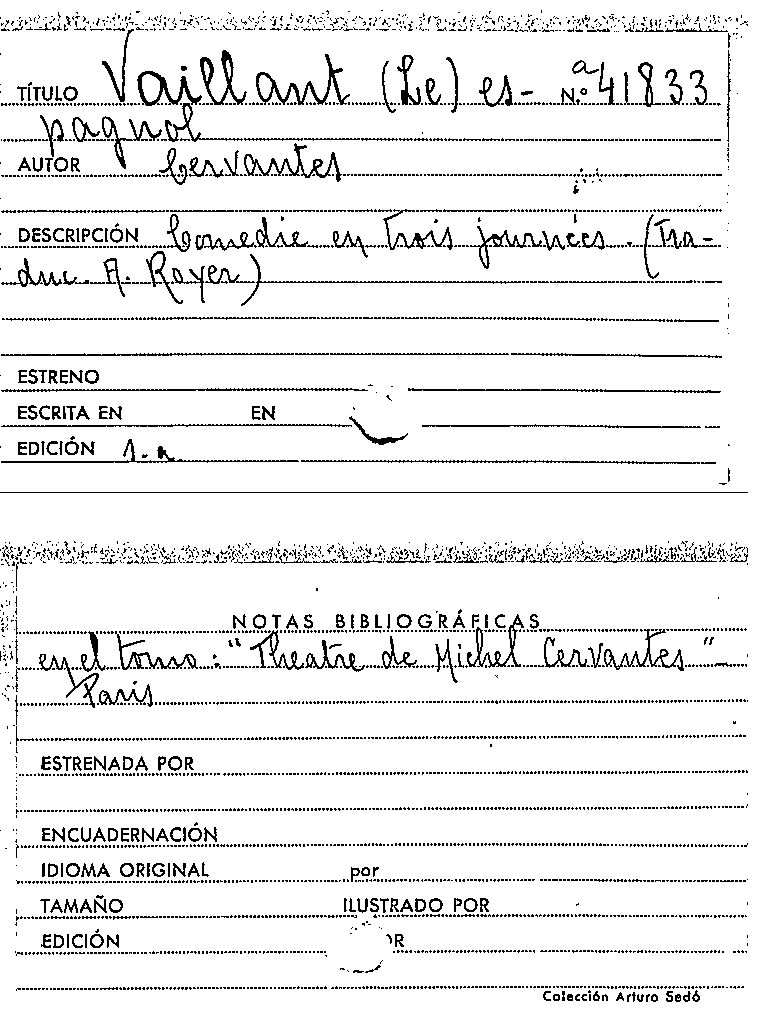 TÍTULO Vaillant (Le) es- N.º a 41833
pagnol
AUTOR Cervantes
DESCRIPCIÓN Comedie en trois journées. (Tra-
duc. A. Royer)
ESTRENO
ESCRITA EN EN
EDICIÓN s.a.
NOTAS BIBLIOGRÁFICAS
en el tomo: "Theatre de Michel Cervantes"-
Paris
ESTRENADA POR
ENCUADERNACIÓN
IDIOMA ORIGINAL por
TAMAÑO ILUSTRADO POR
EDICIÓN
Colección Arturo Sedó